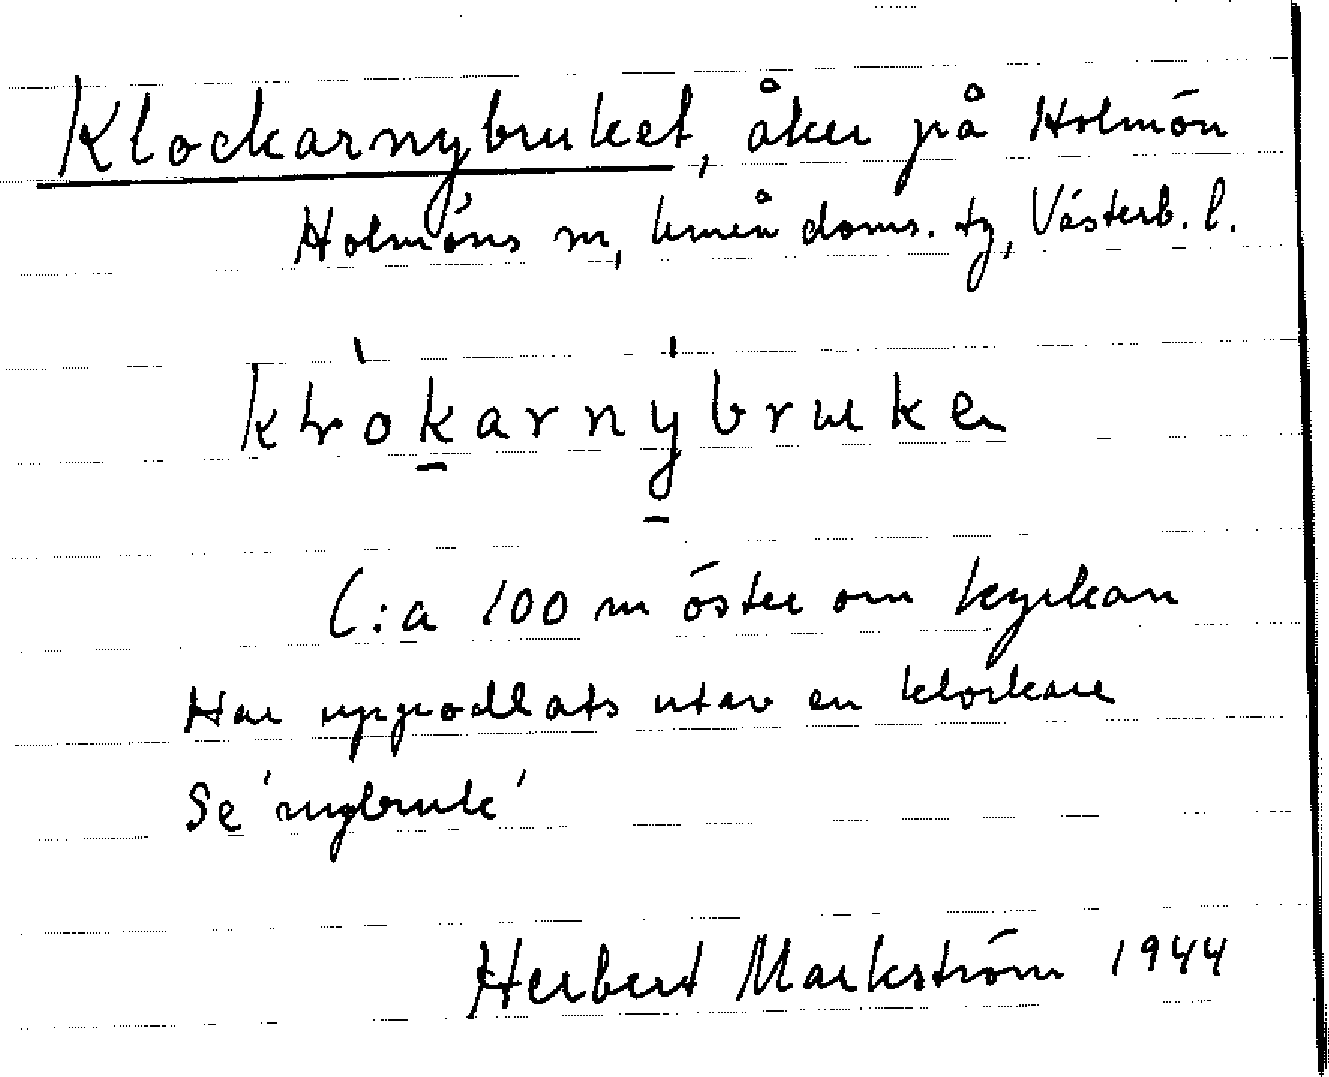 Klockarnybruket, åker på Holmön
Holmöns sn, Umeå doms. tg, Västerb. l.
C:a 100 m öster om kyrkan
Har uppodlats utav en klockare
Se 'nybruk'
Herbert Markström 1944